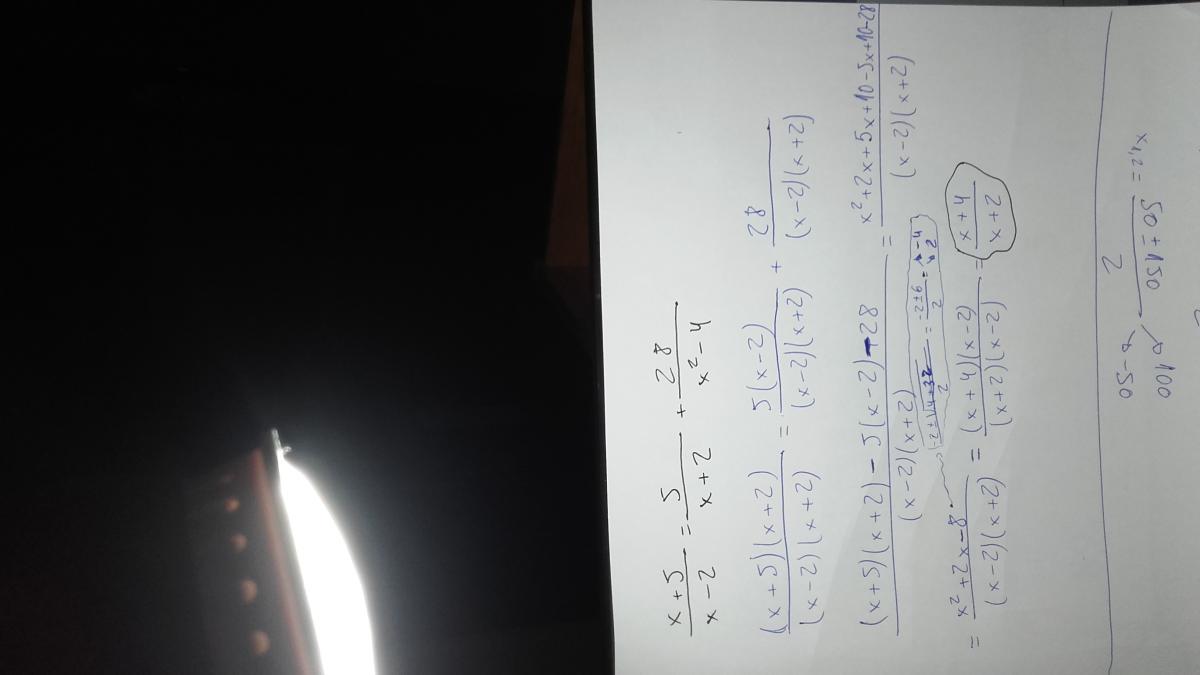 x+5/x-2 = 5/x+2 + 28/x²-4
(x+5)(x+2)/(x-2)(x+2) = 5(x-2)/(x-2)(x+2) + 28/(x-2)(x+2)
(x+5)(x+2)-5(x-2)-28/(x-2)(x+2) = x²+2x+5x+10-5x+10-28/(x-2)(x+2)
-2±√4+32/2 = -2±6/2 = -4 2
= x²+2x-8/(x-2)(x+2) = (x+4)(x-2)/(x+2)(x-2) = x+4/x+2
x₁,₂ = 50±150/2
100
-50